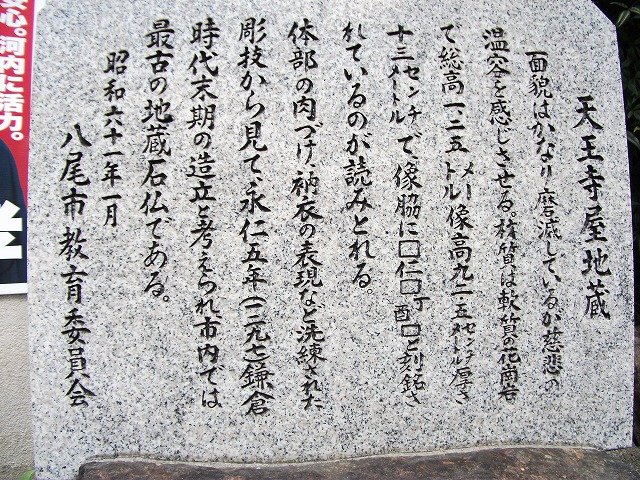 天王寺屋地蔵
面貌はかなり磨滅しているが慈悲の
温容を感じさせる。材質は軟質の花崗岩
で総高一・二五メートル像高九二・五センチメートル厚さ
十三センチメートルで、像脇に□仁□丁酉□と刻銘さ
れているのが読みとれる。
体部の肉づけ、衲衣の表現など洗練された
彫技から見て、永仁五年(一二九七)鎌倉
時代末期の造立と考えられ市内では
最古の地蔵石仏である。
昭和六十一年一月
八尾市教育委員会
安心。河内に活力。